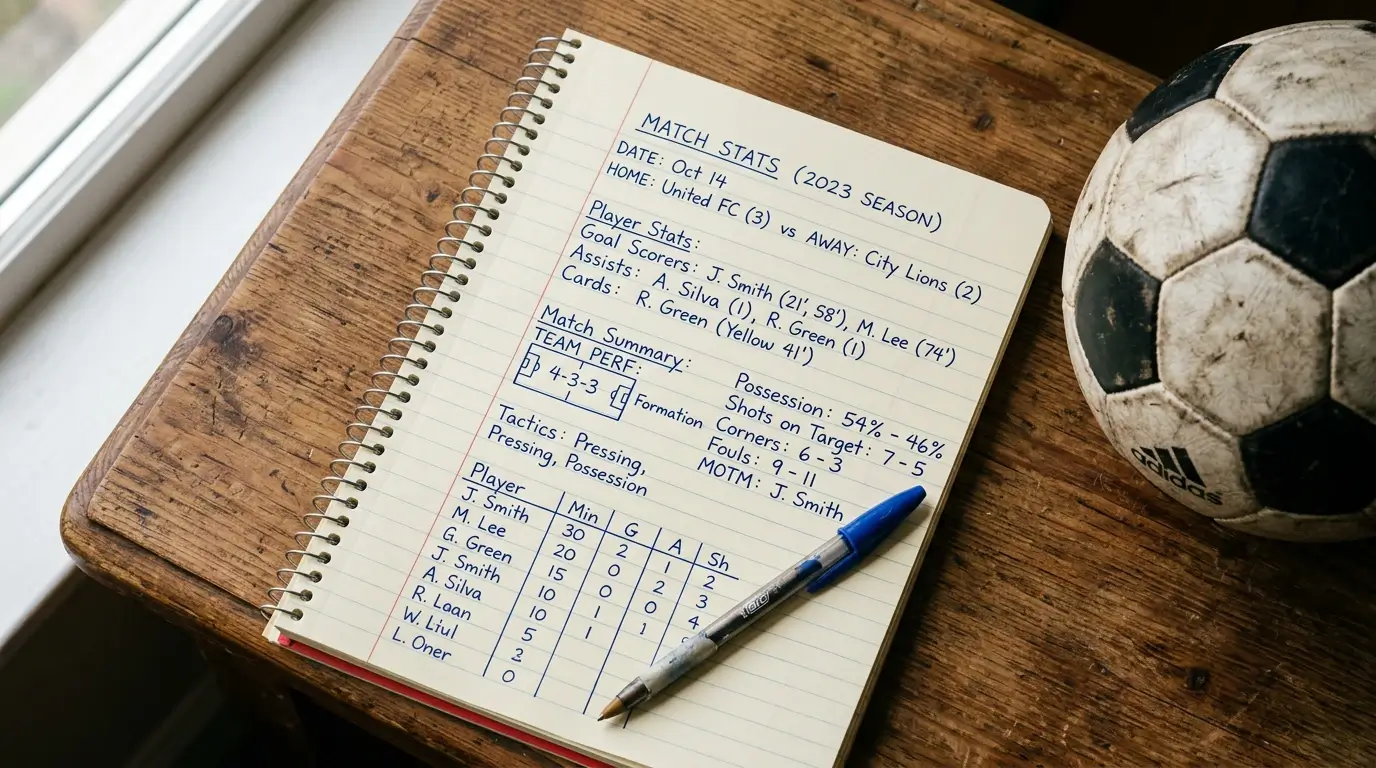 MATCH STATS (2023 SEASON)
DATE: Oct 14
HOME: United FC (3) vs AWAY: City Lions (2)
Player Stats:
Goal Scorers: J. Smith (21', 58'), M. Lee (74')
Assists: A. Silva (1), R. Green (1)
Cards: R. Green (Yellow 41')
Match Summary:
TEAM PERF:
4-3-3
Formation
Tactics: Pressing,
Pressing, Possession
Possession: 54% - 46%
Shots on Target: 7 - 5
Corners: 6 - 3
Fouls: 9 - 11
MOTM: J. Smith
Player Min G A Sh
J. Smith 30 2 1 2
M. Lee 20 0 2 3
G. Green 15 0 0 4
J. Smith 10 1 1
A. Silva 10 1
R. Laan 5
W. Liul 2
L. Oner 0
adidas